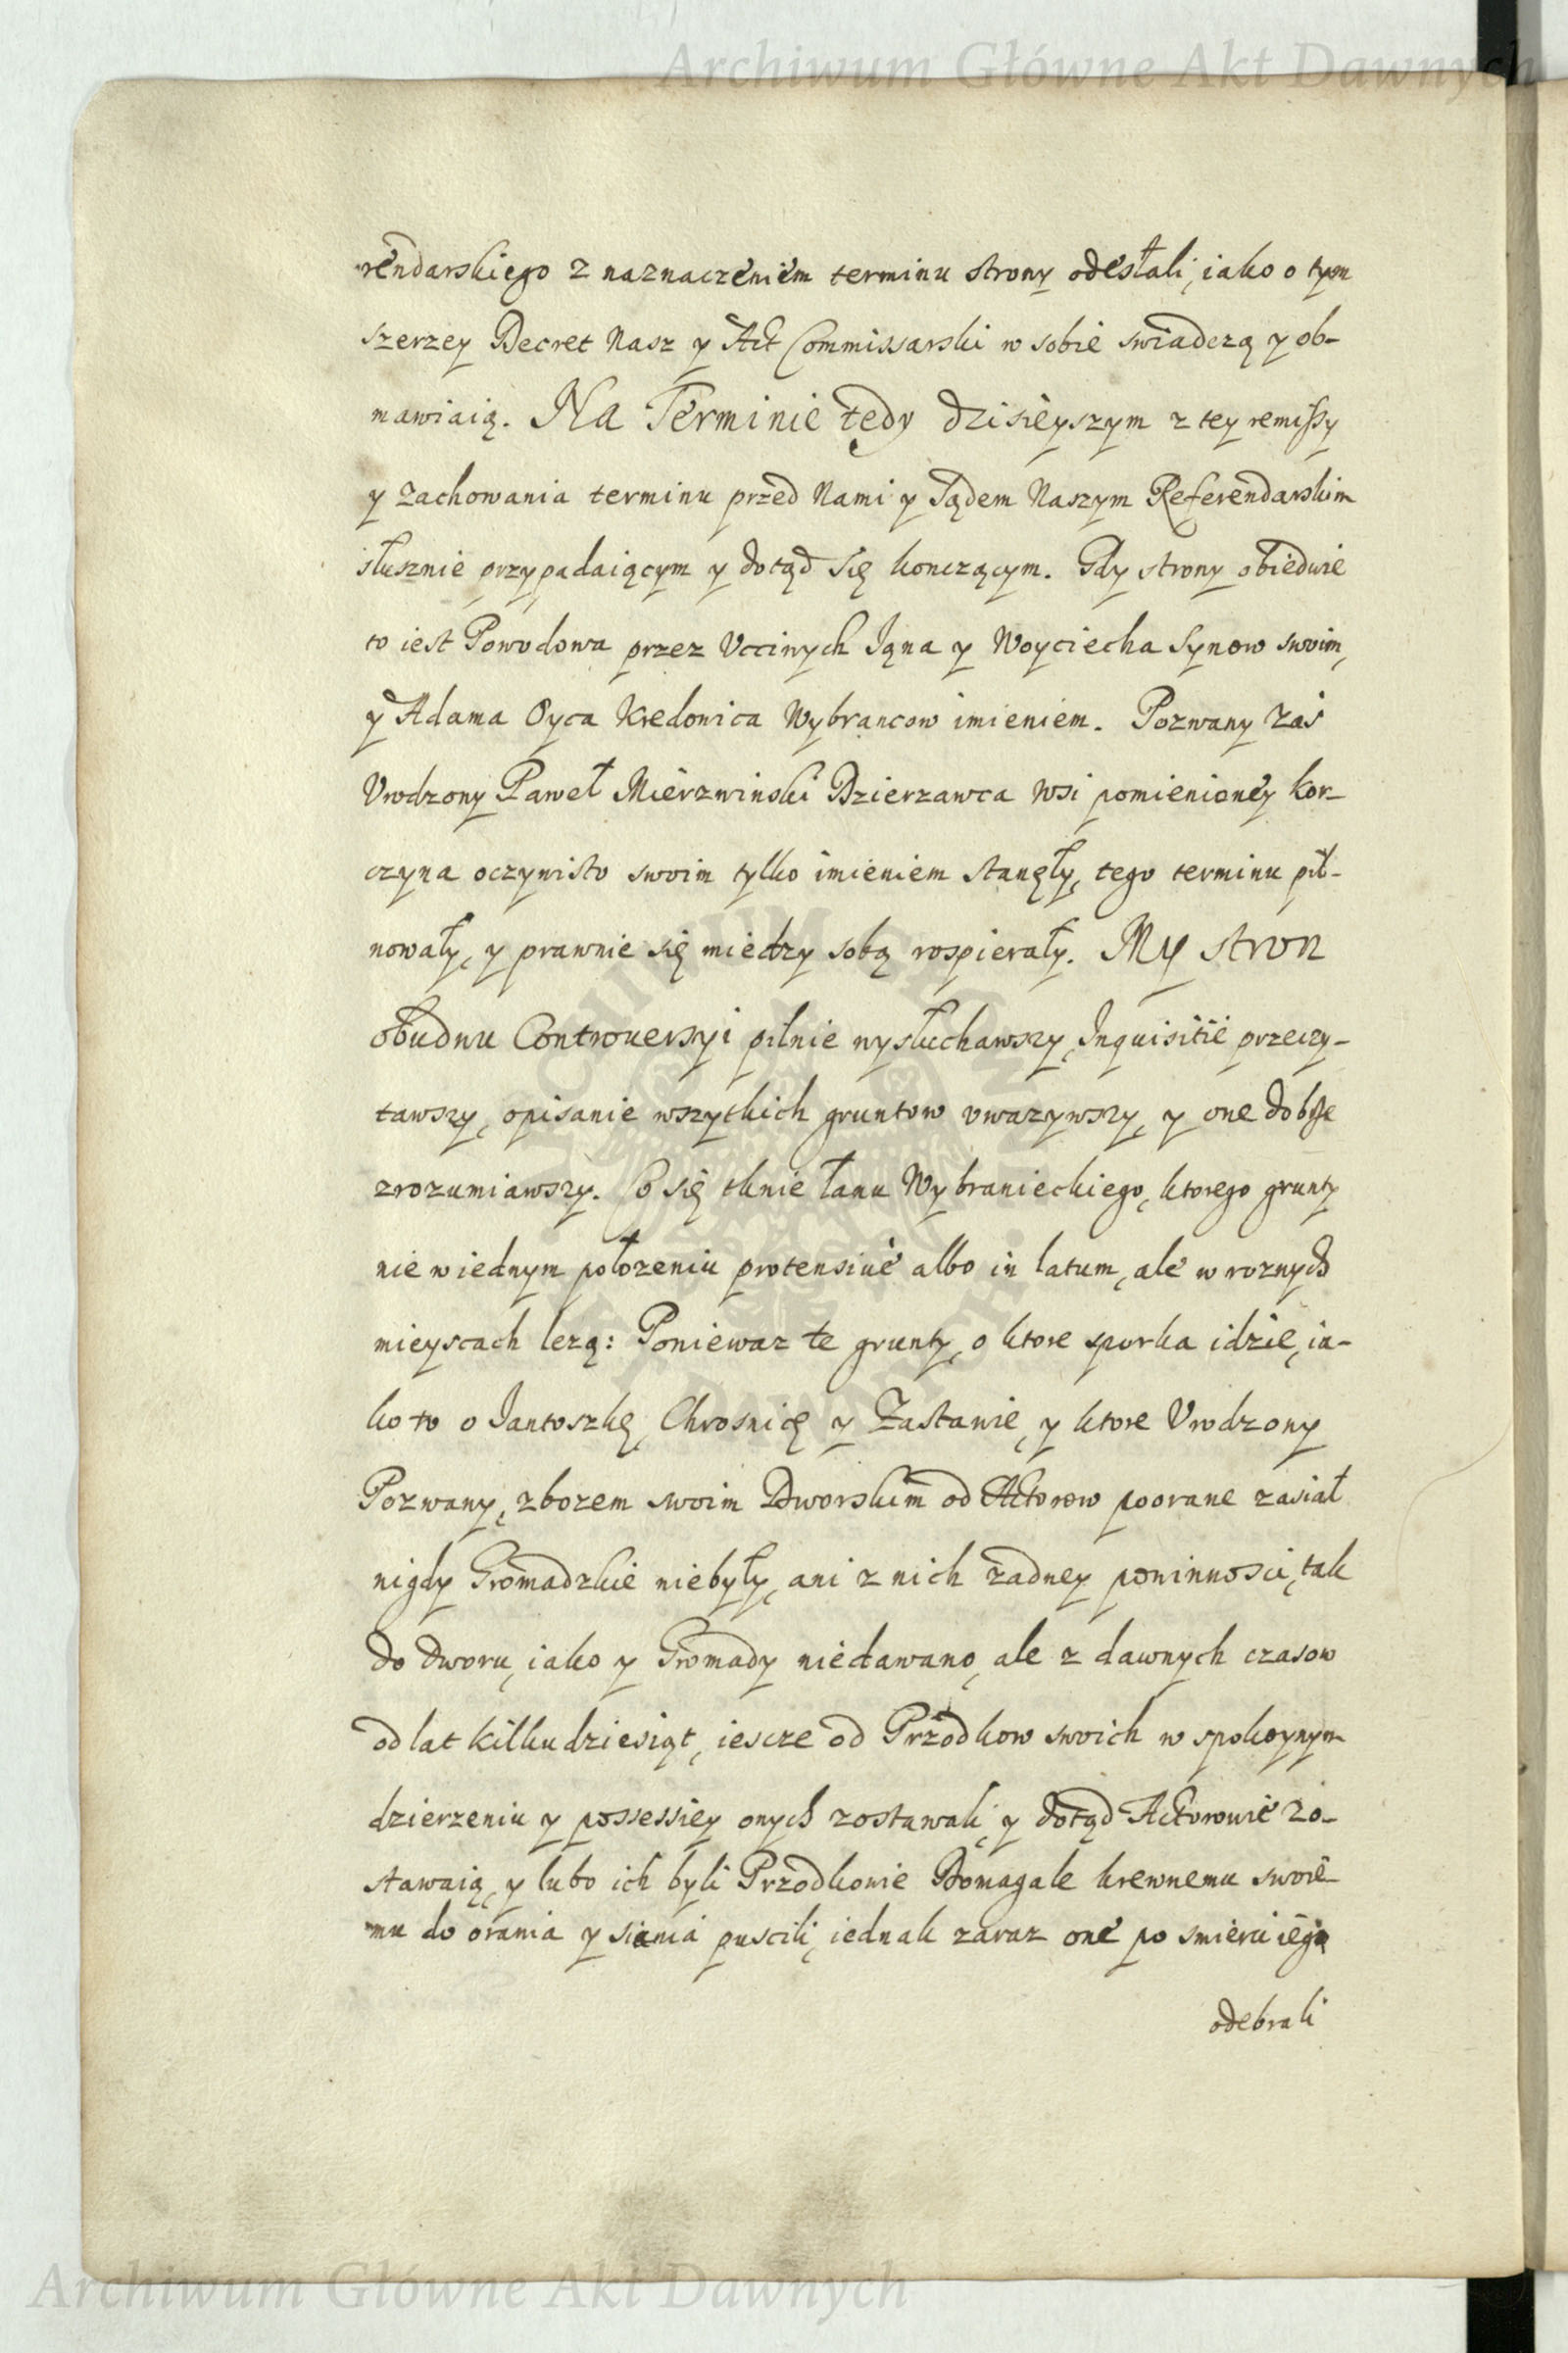 Archiwum Główne Akt Dawnych
rendarskiego z naznaczeniem terminu strony odesłali, iako o tym
szerzey Decret Nasz y Act Commissarski w sobie swiadczą y ob-
mawiaią. Na Terminie tedy dzisieyszym z tey remissy
y zachowania terminu przed Nami y Sądem Naszym Referendarskim
słusznie przypadaiącym y dotąd się konczącym. Gdy strony obiedwie
to iest Powodowa przez Vcciwych Iąna y Woyciecha Synow swoim,
y Adama Oyca Kredonica Wybrancow imieniem. Pozwany zas
Vrodzony Paweł Mierzwinski Dzierzawca Wsi pomienioney Kor-
czyna oczywisto swoim tylko imieniem stanęły, tego terminu pil-
nowały, y prawnie się miedzy sobą rospierały. My stron
obudwu Controuersyi pilnie wysłuchawszy, Inquisitie przeczy-
tawszy, opisanie wszytkich gruntow vwazywszy, y one dobrze
zrozumiawszy. Co się tknie łanu Wybranieckiego, ktorego grunty
nie w iednym połozeniu protensiué albo in latum, ale w roznych
mieyscach lezą: Poniewaz te grunty, o ktore spurka idzie, ia-
ko to o Iantoszkę, Chrosnicę y Zastawie, y ktore Vrodzony
Pozwany, zbozem swoim Dworskim od Actorow poorane zasiał
nigdy Gromadzkie niebyły, ani z nich zadney powinnosci, tak
do dworu, iako y Gromady niedawano, ale z dawnych czasow
od lat kilkudziesiąt, iescze od Przodkow swoich w spokoynym
dzierzeniu y possessiey onych zostawali, y dotąd Actorowie zo-
stawaią, y lubo ich byli Przodkowie Domagale krewnemu swoie-
mu do orania y siania puscili, iednak zaraz one po smierci iego
odebrali
Archiwum Główne Akt Dawnych